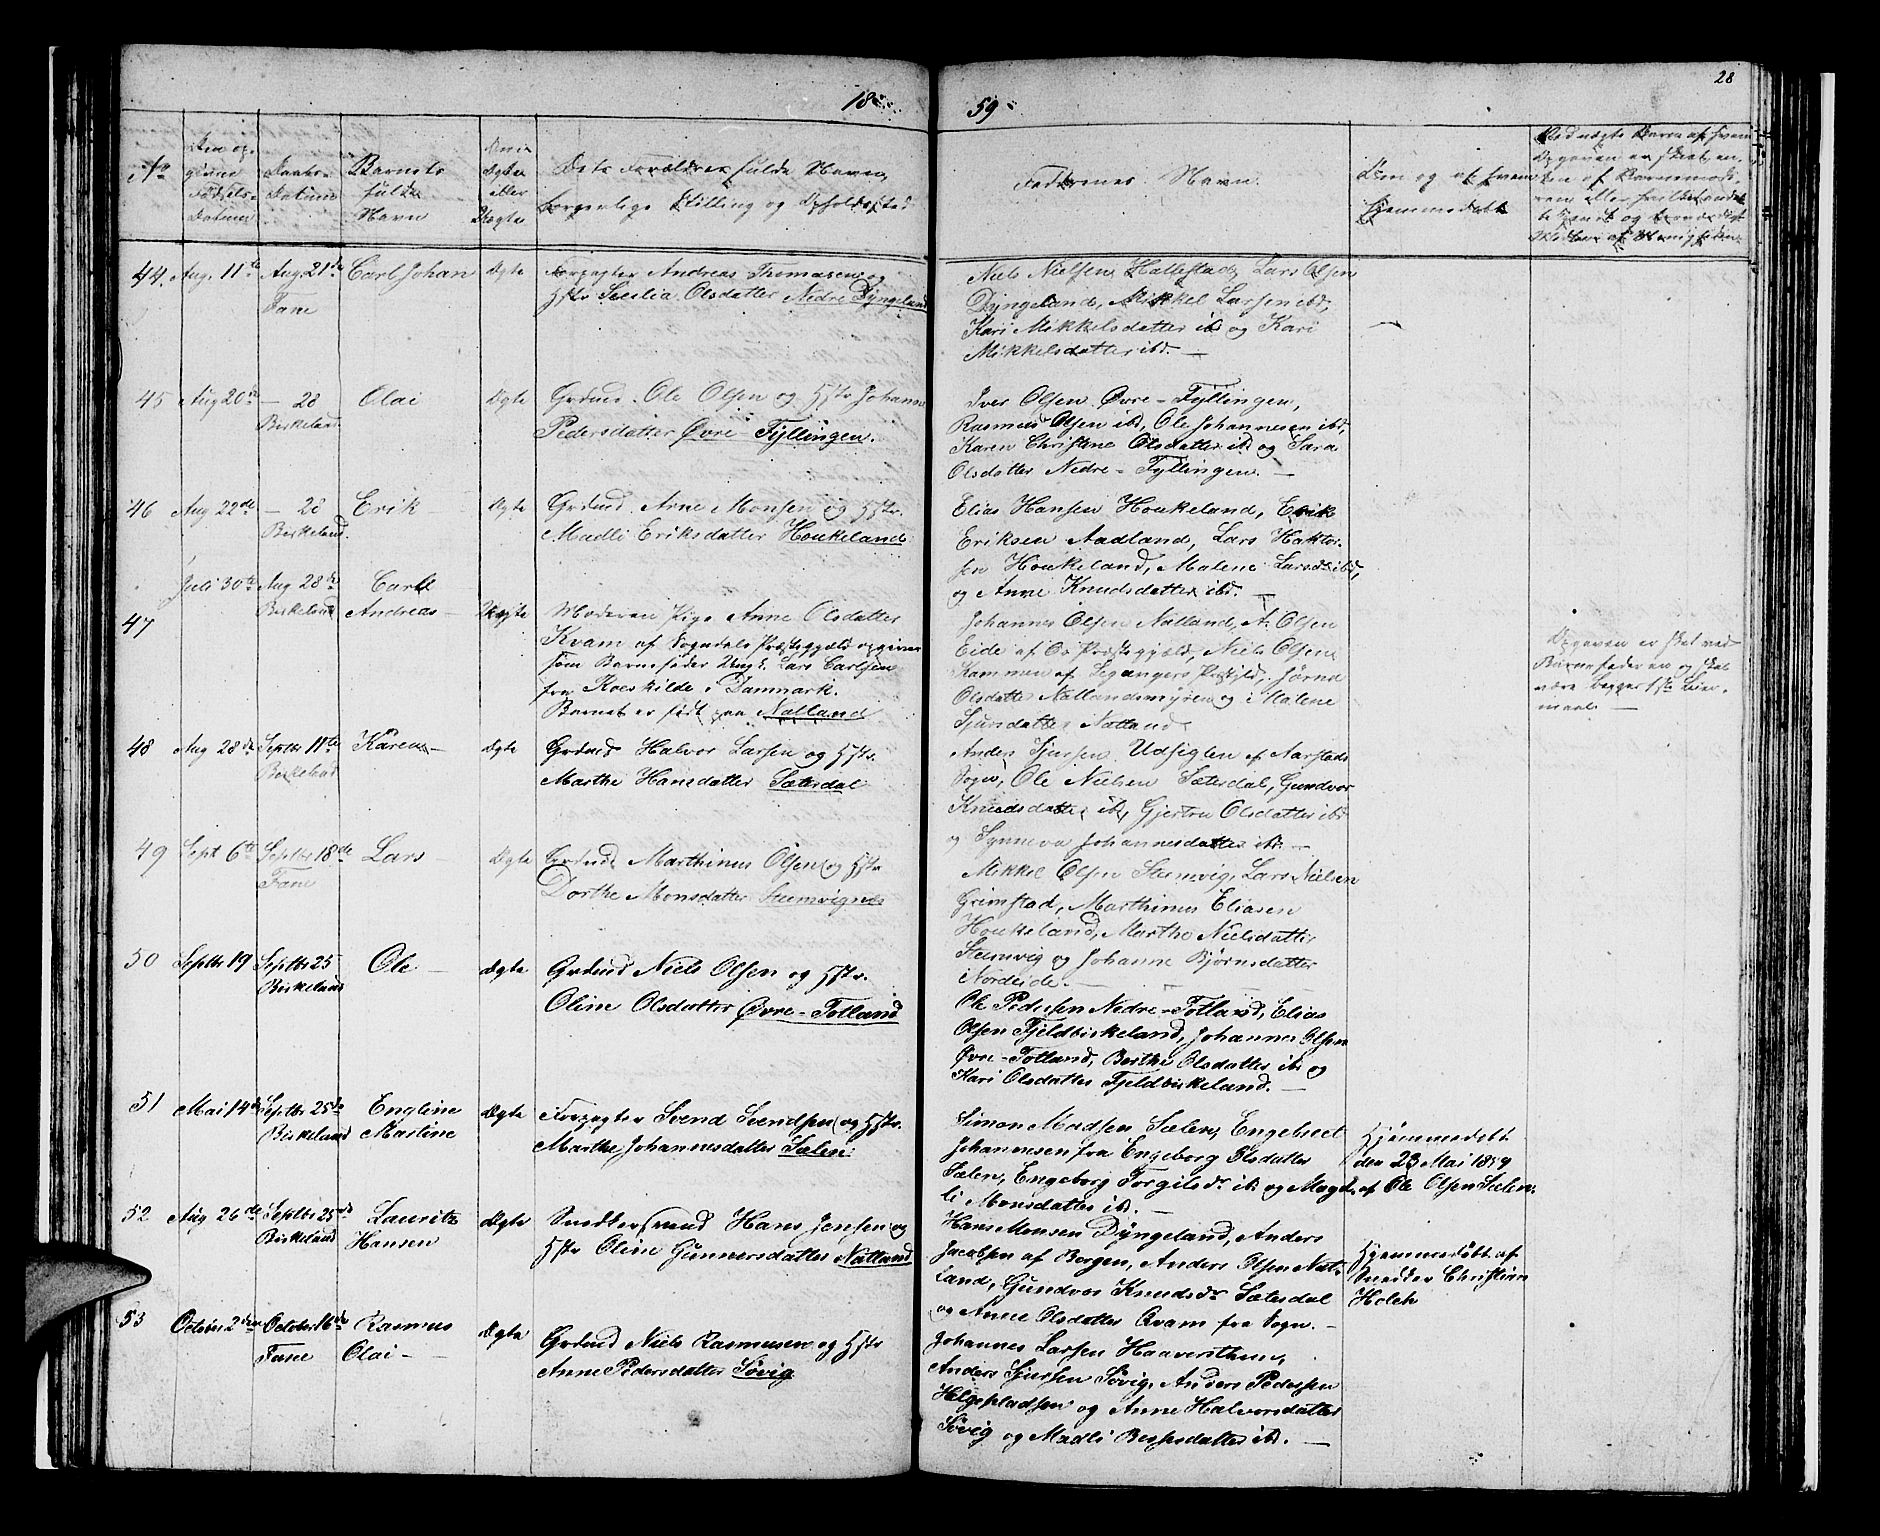 28
18
59
No
Den op-
givne
Fødsels-
Datum
Daabs-
Datum
Barnets
fulde
Navn
Om
Ægte
eller
Uægte
Dets Forældres fulde Navn,
borgerlige Stilling og Opholdssted
Faddernes Navn.
Naar og af hvem
hjemmedøbt
44. Aug. 11te Aug 21de Carl Johan Ægte Forpagter Andreas Thomasen og
Fane Hstr Secilia Olsdatter Nedre Dyngeland
Niels Nielsen Hallestad, Lars Olsen
Dyngeland, Mikkel Larsen ibd,
Kari Mikkelsdatter ibd og Kari
Mikkelsdatter ibd. —
45 Aug 20de — 28 Olai Ægte Grdmd. Ole Olsen og Hstr Johanne
Birkeland Pedersdatter Øvre-Fyllingen.
Iver Olsen Øvre-Fyllingen,
Rasmus Olsen ibd, Ole Johannesen ibd,
Karen Christine Olsdatter ibd og Sara
Olsdatter Nedre-Fyllingen. —
46 Aug 22de — 28 Erik — Ægte Grdmd. Arne Monsen og Hstr.
Birkeland. Madli Eriksdatter Houkeland.
Elias Hansen Houkeland, Erik
Eriksen Aadland, Lars Haktor-
sen Houkeland, Malene Larsdtr ibd,
og Anne Knudsdatter ibd. —
47 Juli 30te Aug 28de Carl
Birkeland Andreas — Uægte Moderen Pige Anne Olsdatter
Kvam af Sogndals Præstegjæld opgiver
som Barnefader Ungk. Lars Carlsen
fra Roeskilde i Danmark.
Barnet er født paa Natland
Johannes Olsen Natland, A. Olsen
Eide af Os Præstegjæld, Niels Olsen
af Legangers Prstgjld, Jørna
Olsdatter Natlandsmyren og Malene
Sjursdatter Natland
Opgaven er sket ved
Barnefaderen og skal
være begges 1ste Leier-
maal —
48 Aug 28de Septbr 11te Karen — Ægte Grdmd Halvor Larsen og Hstr.
Birkeland Marthe Hansdatter Sætersdal
Anders Sjursen Udsiglen af Aarstads
Sogn, Ole Nielsen Sætersdal, Gundvor
Knudsdatter ibd, Gjertru Olsdatter ibd
og Synneva Johannesdatter ibd. —
49 Sept 6te Septbr 18de Lars — Ægte Grdmd. Marthinus Olsen og Hstr
Fane Dorthe Monsdatter Steinvignæs
Mikkel Olsen Steinvig, Lars Nielsen
Grimstad, Marthinus Eliasen
Houkeland, Marthe Nielsdatter
Steinvig og Johanne Bjørnsdatter
Nordeide. —
50 Septbr 19 Septbr 25 Ole — Ægte Grdmd Niels Olsen og Hstr.
Birkeland Oline Olsdatter Øvre-Totland
Ole Pedersen Nedre-Totland, Elias
Olsen Fjeldbirkeland, Johannes Olsen
Øvre-Totland, Berthe Olsdatter ibd og
Kari Olsdatter Fjeldbirkeland. —
51 Mai 14de Septbr 25de Engline Ægte Forpagter Svend Svendsen og Hstr.
Birkeland Martine Marthe Johannesdatter Sælen.
Simon Madsen Sælen, Engebret
Johannesen fra Engeborg Olsdatter
Sælen, Engeborg Torgilsdr ibd og Magd-
li Monsdatter ibd. —
Hjemmedøbt
den 23 Mai 1859
af Ole Olsen Sælen.
52 Aug 26de Septbr 25de Lauritz Ægte Snedkersvend Hans Jensen og
Birkeland Hansen Hstr Oline Gunnersdatter Natland
Hans Monsen Dyngeland, Anders
Jacobsen af Bergen, Anders Olsen Nat-
land, Gundvor Knudsdr Sætersdal
og Anne Olsdatter Qvam fra Sogn. —
Hjemmedøbt af
Snedker Christian
Holck
53 October 2den October 16de Rasmus Ægte Grdmd Niels Rasmusen og Hstr
Fane Olai — Anne Pedersdatter Søvig
Johannes Larsen Haaversthun,
Anders Sjursen Søvig, Anders Pedersen
Helgepladsen og Anne Halvorsdatter
Søvig og Madli Bessesdatter ibd. —